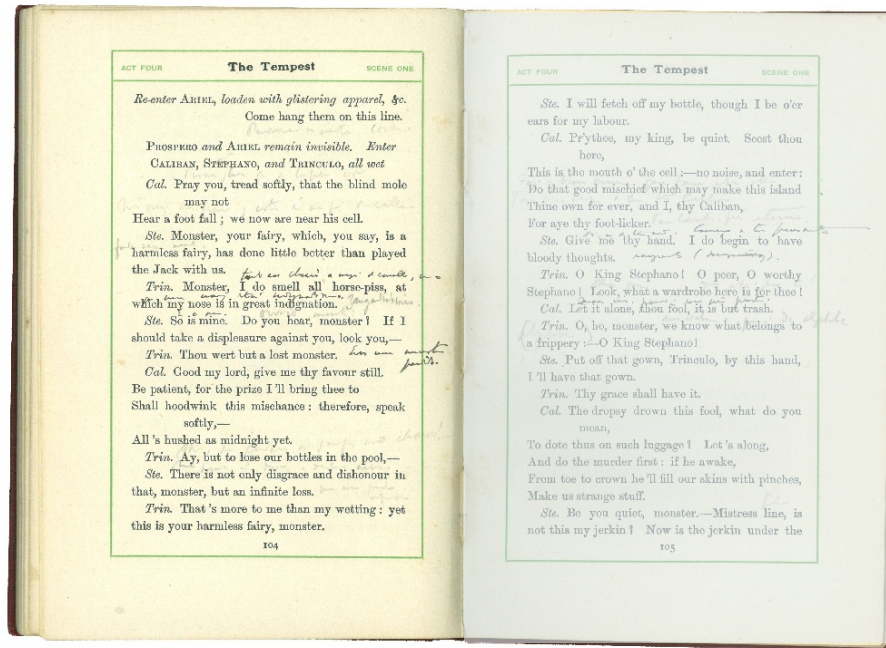 ACT FOUR The Tempest SCENE ONE
Re-enter ARIEL, loaden with glistering apparel, &c.
Come hang them on this line.
PROSPERO and ARIEL remain invisible. Enter
CALIBAN, STEPHANO, and TRINCULO, all wet
Cal. Pray you, tread softly, that the blind mole
may not
Hear a foot fall; we now are near his cell.
Ste. Monster, your fairy, which, you say, is a
harmless fairy, has done little better than played
the Jack with us.
Trin. Monster, I do smell all horse-piss, at
which my nose is in great indignation.
Ste. So is mine. Do you hear, monster? If I
should take a displeasure against you, look you,—
Trin. Thou wert but a lost monster.
Cal. Good my lord, give me thy favour still.
Be patient, for the prize I'll bring thee to
Shall hoodwink this mischance: therefore, speak
softly,—
All's hushed as midnight yet.
Trin. Ay, but to lose our bottles in the pool,—
Ste. There is not only disgrace and dishonour in
that, monster, but an infinite loss.
Trin. That's more to me than my wetting: yet
this is your harmless fairy, monster.
104
ACT FOUR The Tempest SCENE ONE
Ste. I will fetch off my bottle, though I be o'er
ears for my labour.
Cal. Pr'ythee, my king, be quiet. Seest thou
here,
This is the mouth o' the cell:—no noise, and enter:
Do that good mischief which may make this island
Thine own for ever, and I, thy Caliban,
For aye thy foot-licker.
Ste. Give me thy hand. I do begin to have
bloody thoughts.
Trin. O King Stephano! O peer, O worthy
Stephano! Look, what a wardrobe here is for thee!
Cal. Let it alone, thou fool, it is but trash.
Trin. O, ho, monster, we know what belongs to
a frippery:—O King Stephano!
Ste. Put off that gown, Trinculo, by this hand,
I'll have that gown.
Trin. Thy grace shall have it.
Cal. The dropsy drown this fool, what do you
mean,
To dote thus on such luggage? Let's along,
And do the murder first: if he awake,
From toe to crown he'll fill our skins with pinches,
Make us strange stuff.
Ste. Be you quiet, monster.—Mistress line, is
not this my jerkin? Now is the jerkin under the
105